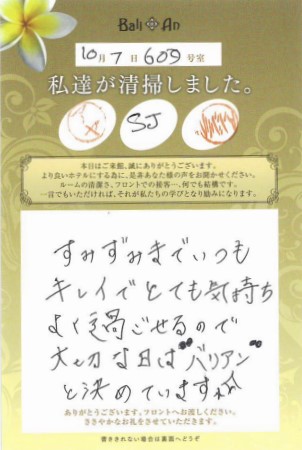 Bali An
10月7日609号室
私達が清掃しました。
SJ
本日はご来館、誠にありがとうございます。
より良いホテルにする為に、是非あなた様の声をお聞かせください。
ルームの清潔さ、フロントでの接客…、何でも結構です。
一言でもいただければ、それが私たちの学びとなり励みになります。
すみずみまでいつも
キレイでとても気持ち
よく過ごせるので
大切な日は"バリアン"
と決めています
ありがとうございます。フロントへお渡しください。
ささやかなお礼をさせていただきます。
書ききれない場合は裏面へどうぞ